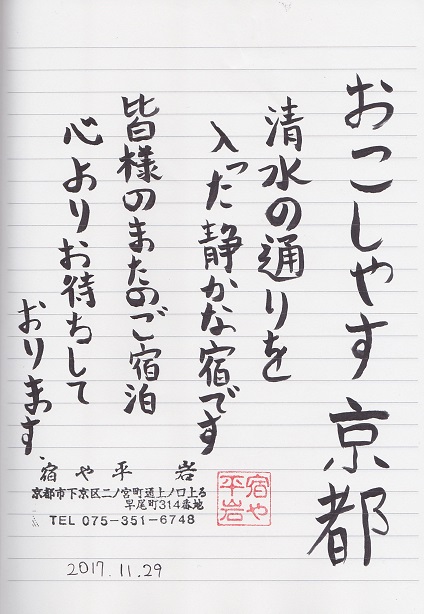 おこしやす 京都
清水の通りを
入った静かな宿です
皆様のまたのご宿泊
心よりお待ちして
おります
宿や平岩
京都市下京区二ノ宮町通上ノ口上る
早尾町314番地
TEL 075-351-6748
宿や
平岩
2017.11.29